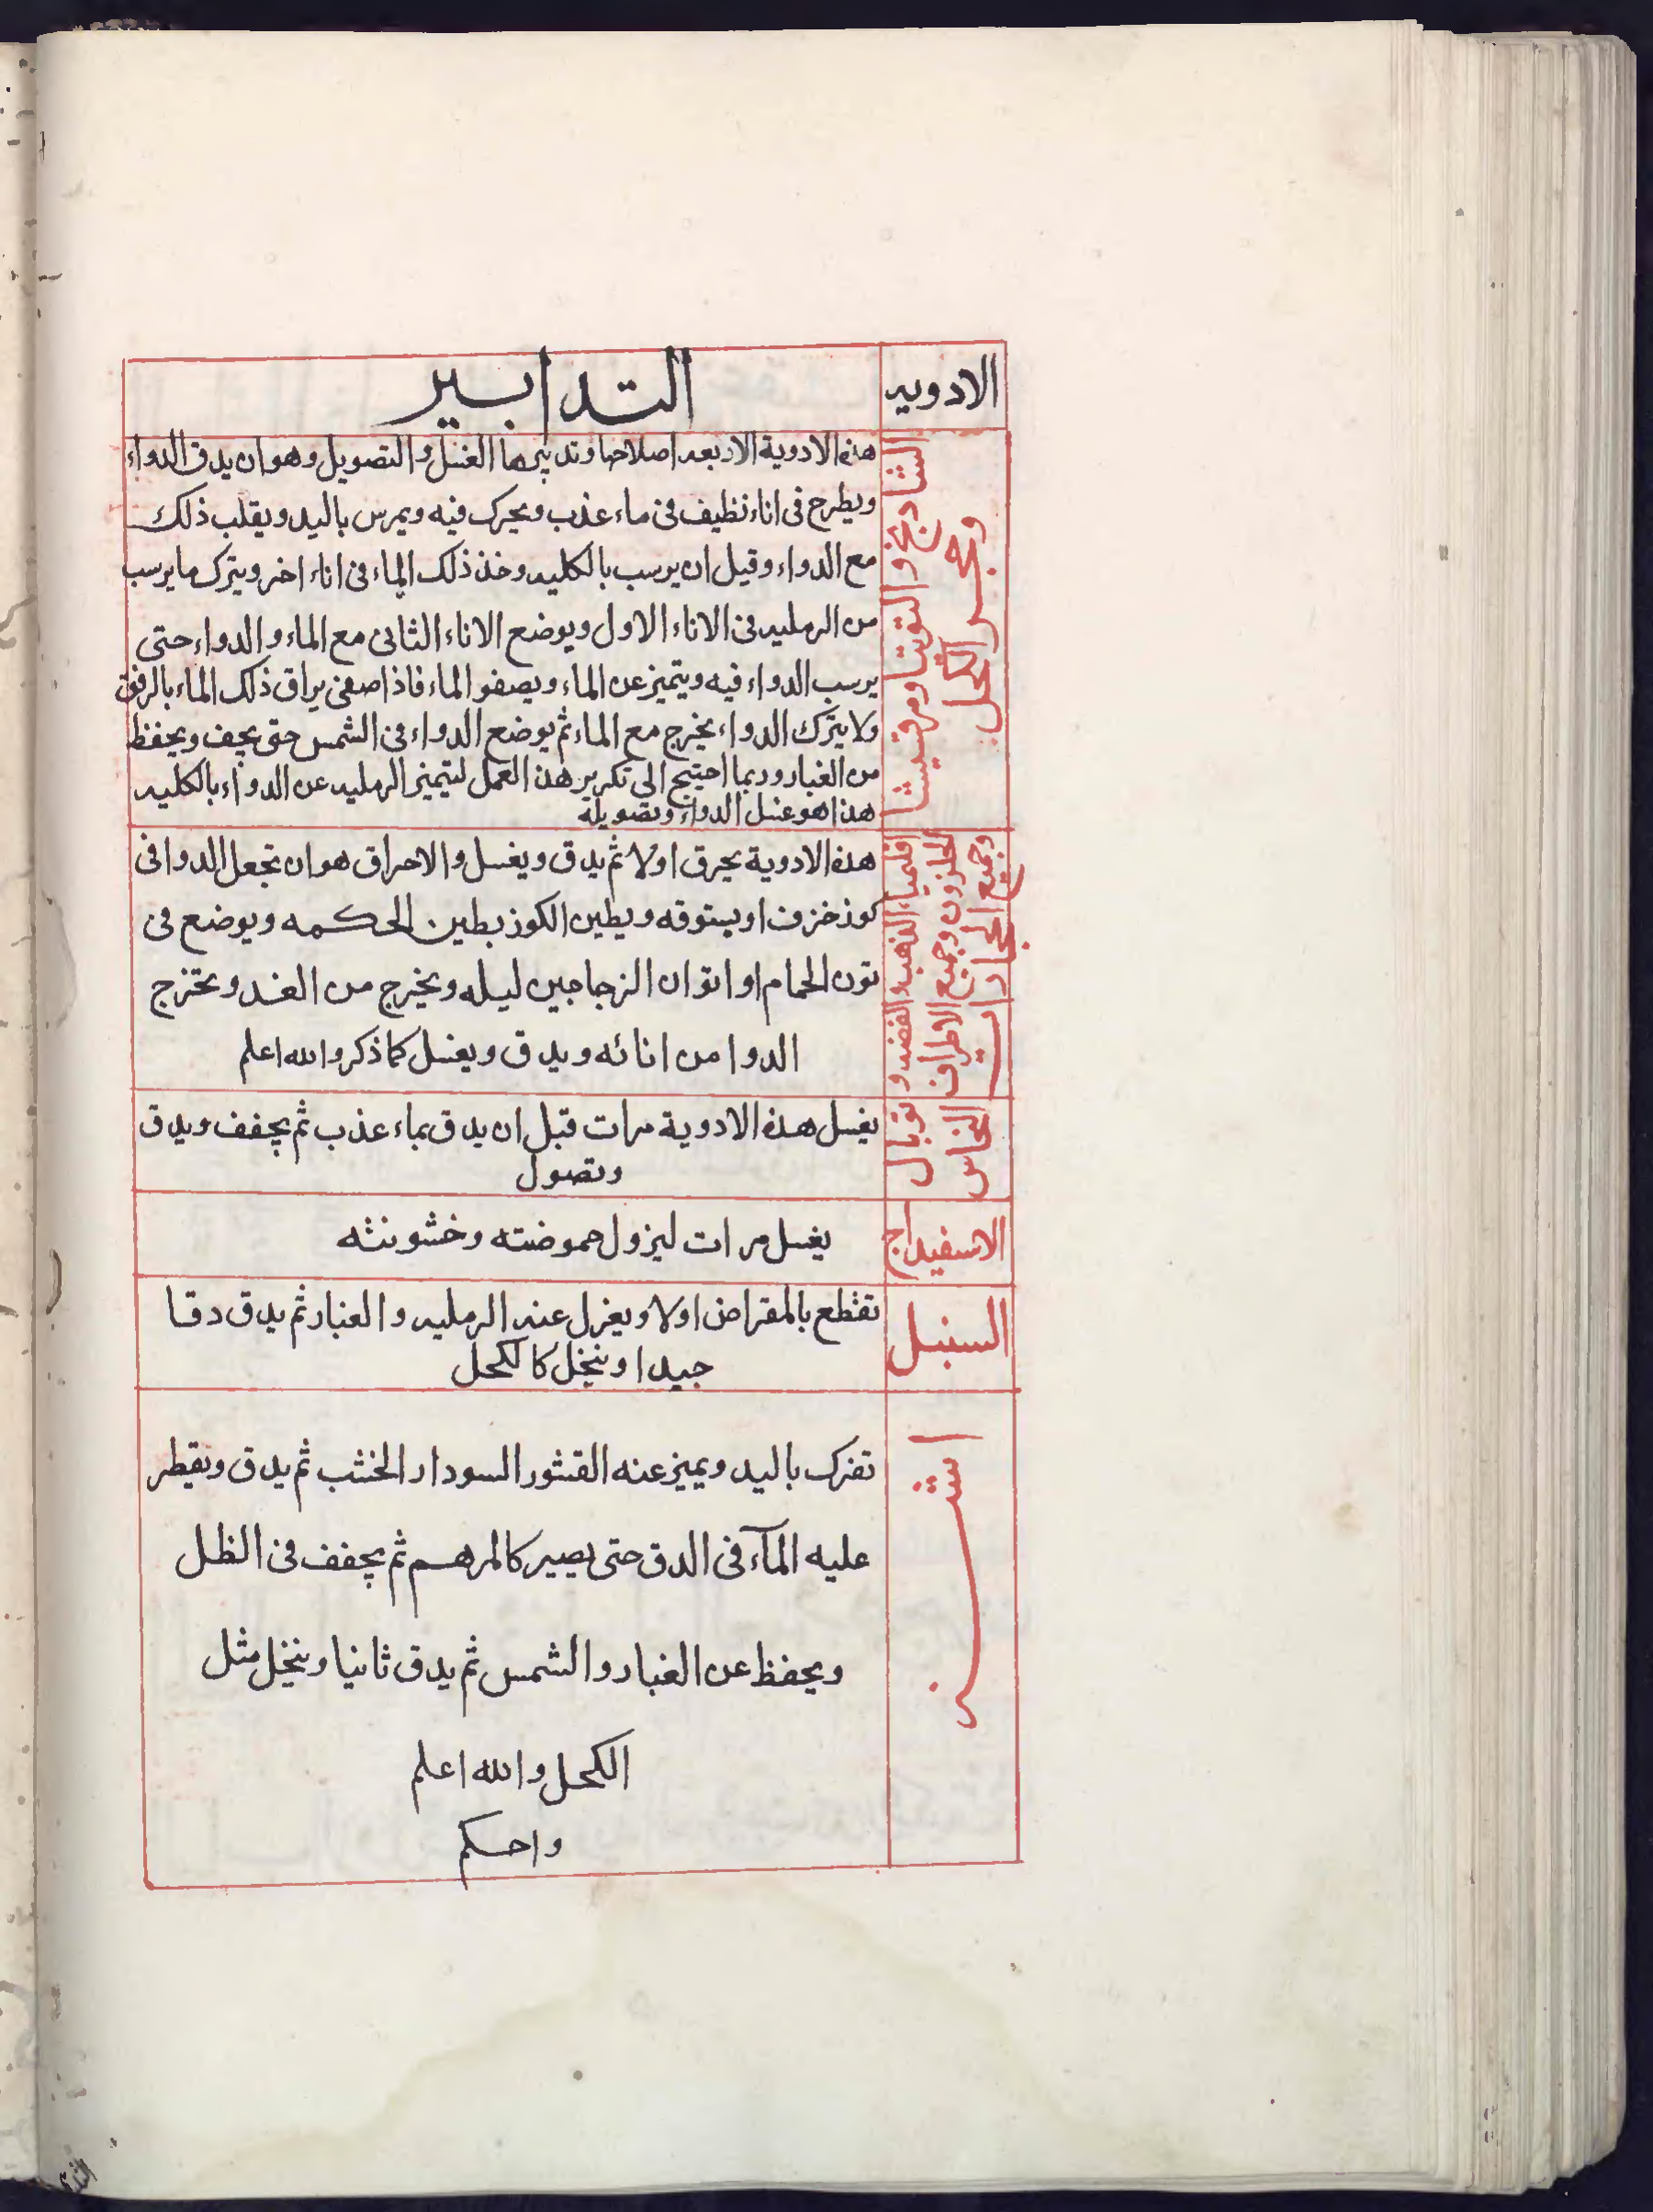 الادويه
التدابير
الشادنج والتوتيا ومرقشيثا
وحجر الكحل
هذه الادوية الاربعه اصلاحها وتدبيرها الغسل والتصويل وهو ان يدق الدواء
ويطرح فى اناء نظيف فى ماء عذب ويحرك فيه ويمرس باليد ويقلب ذلك
مع الدواء وقيل ان يرسب بالكليه وخذ ذلك الماء فى اناء اخر ويترك ما يرسب
من الرمليه فى الاناء الاول ويوضع الاناء الثانى مع الماء والدواء حتى
يرسب الدواء فيه ويتميز عن الماء ويصفو الماء فاذا صفى يراق ذلك الماء بالرفق
ولا يترك الدواء يخرج مع الماء ثم يوضع الدواء فى الشمس حتى يجف ويحفظ
من الغبار وربما احتيج الى تكرير هذ العمل ليتميز الرمليه عن الدواء بالكليه
هذا هو غسل الدواء وتصويله
اقليمياء الذهب والفضه و
الحلزون وجميع الاطراف
وجميع الحجارات
هذه الادوية يحرق اولا ثم يدق ويغسل والاحراق هو ان تجعل الدوا فى
كوز خزف او بستوقه ويطين الكوز بطين الحكمه ويوضع فى
تون الحمام او اتوان الزجاجين ليله ويخرج من الغد وتخرج
الدوا من انائه ويدق ويغسل كما ذكر والله اعلم
توبال
النحاس
يغسل هذه الادوية مرات قبل ان يدق بماء عذب ثم يجفف ويدق
وتصول
الاسفيداج
يغسل مرات ليزول حموضته وخشونته
السنبل
تقطع بالمقراض اولا ويغزل عنه الرمليه والغبار ثم يدق دقا
جيدا وينخل كالكحل
اشنه
تفرك باليد ويميز عنه القشور السود ار الخشب ثم يدق ويقطر
عليه المآء فى الدق حتى يصير كالمرهم ثم يجفف فى الظل
ويحفظ عن الغبار والشمس ثم يدق ثانيا وينخل مثل
الكحل والله اعلم
واحكم